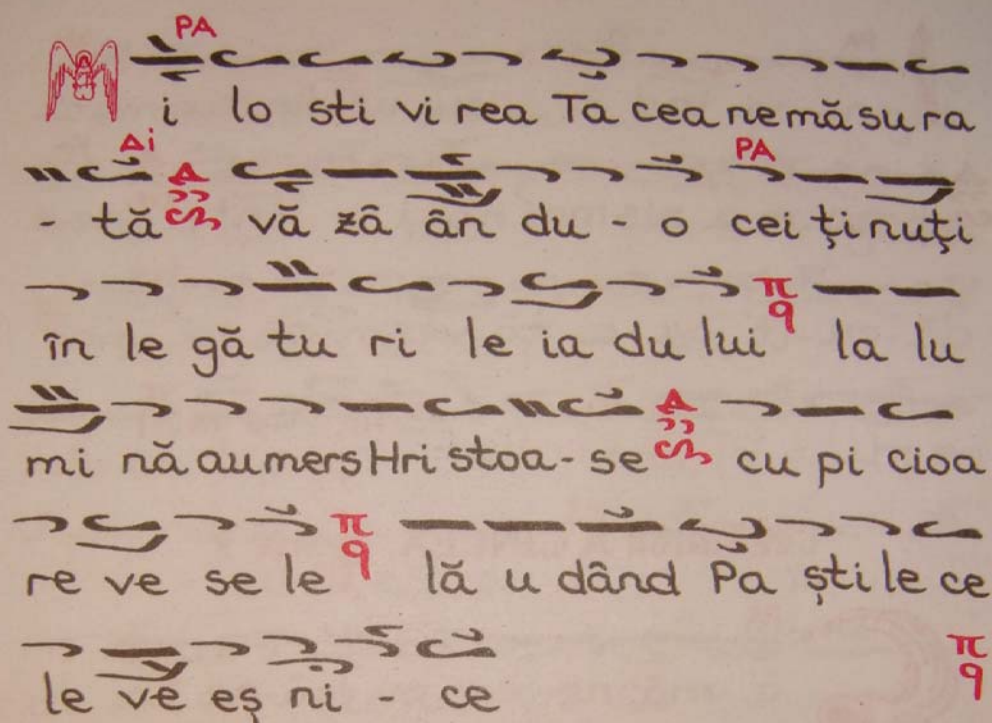 PA
i lo sti vi rea Ta cea ne mă su ra
Δi PA
- tă vă zâ ân du - o cei ţi nuţi
în le gă tu ri le ia du lui la lu
mi nă au mers Hri stoa - se cu pi cioa
re ve se le lă u dând Pa şti le ce
le ve eş ni - ce